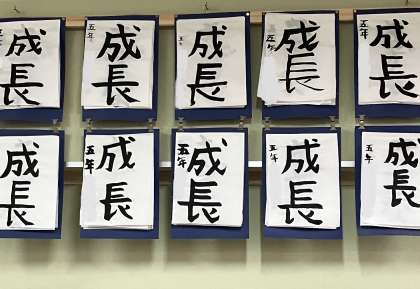 成長
成長
五年
成長
成長
五年
成長
五年
成長
成長
五年
成長
五年
成長
五年
成長
五年